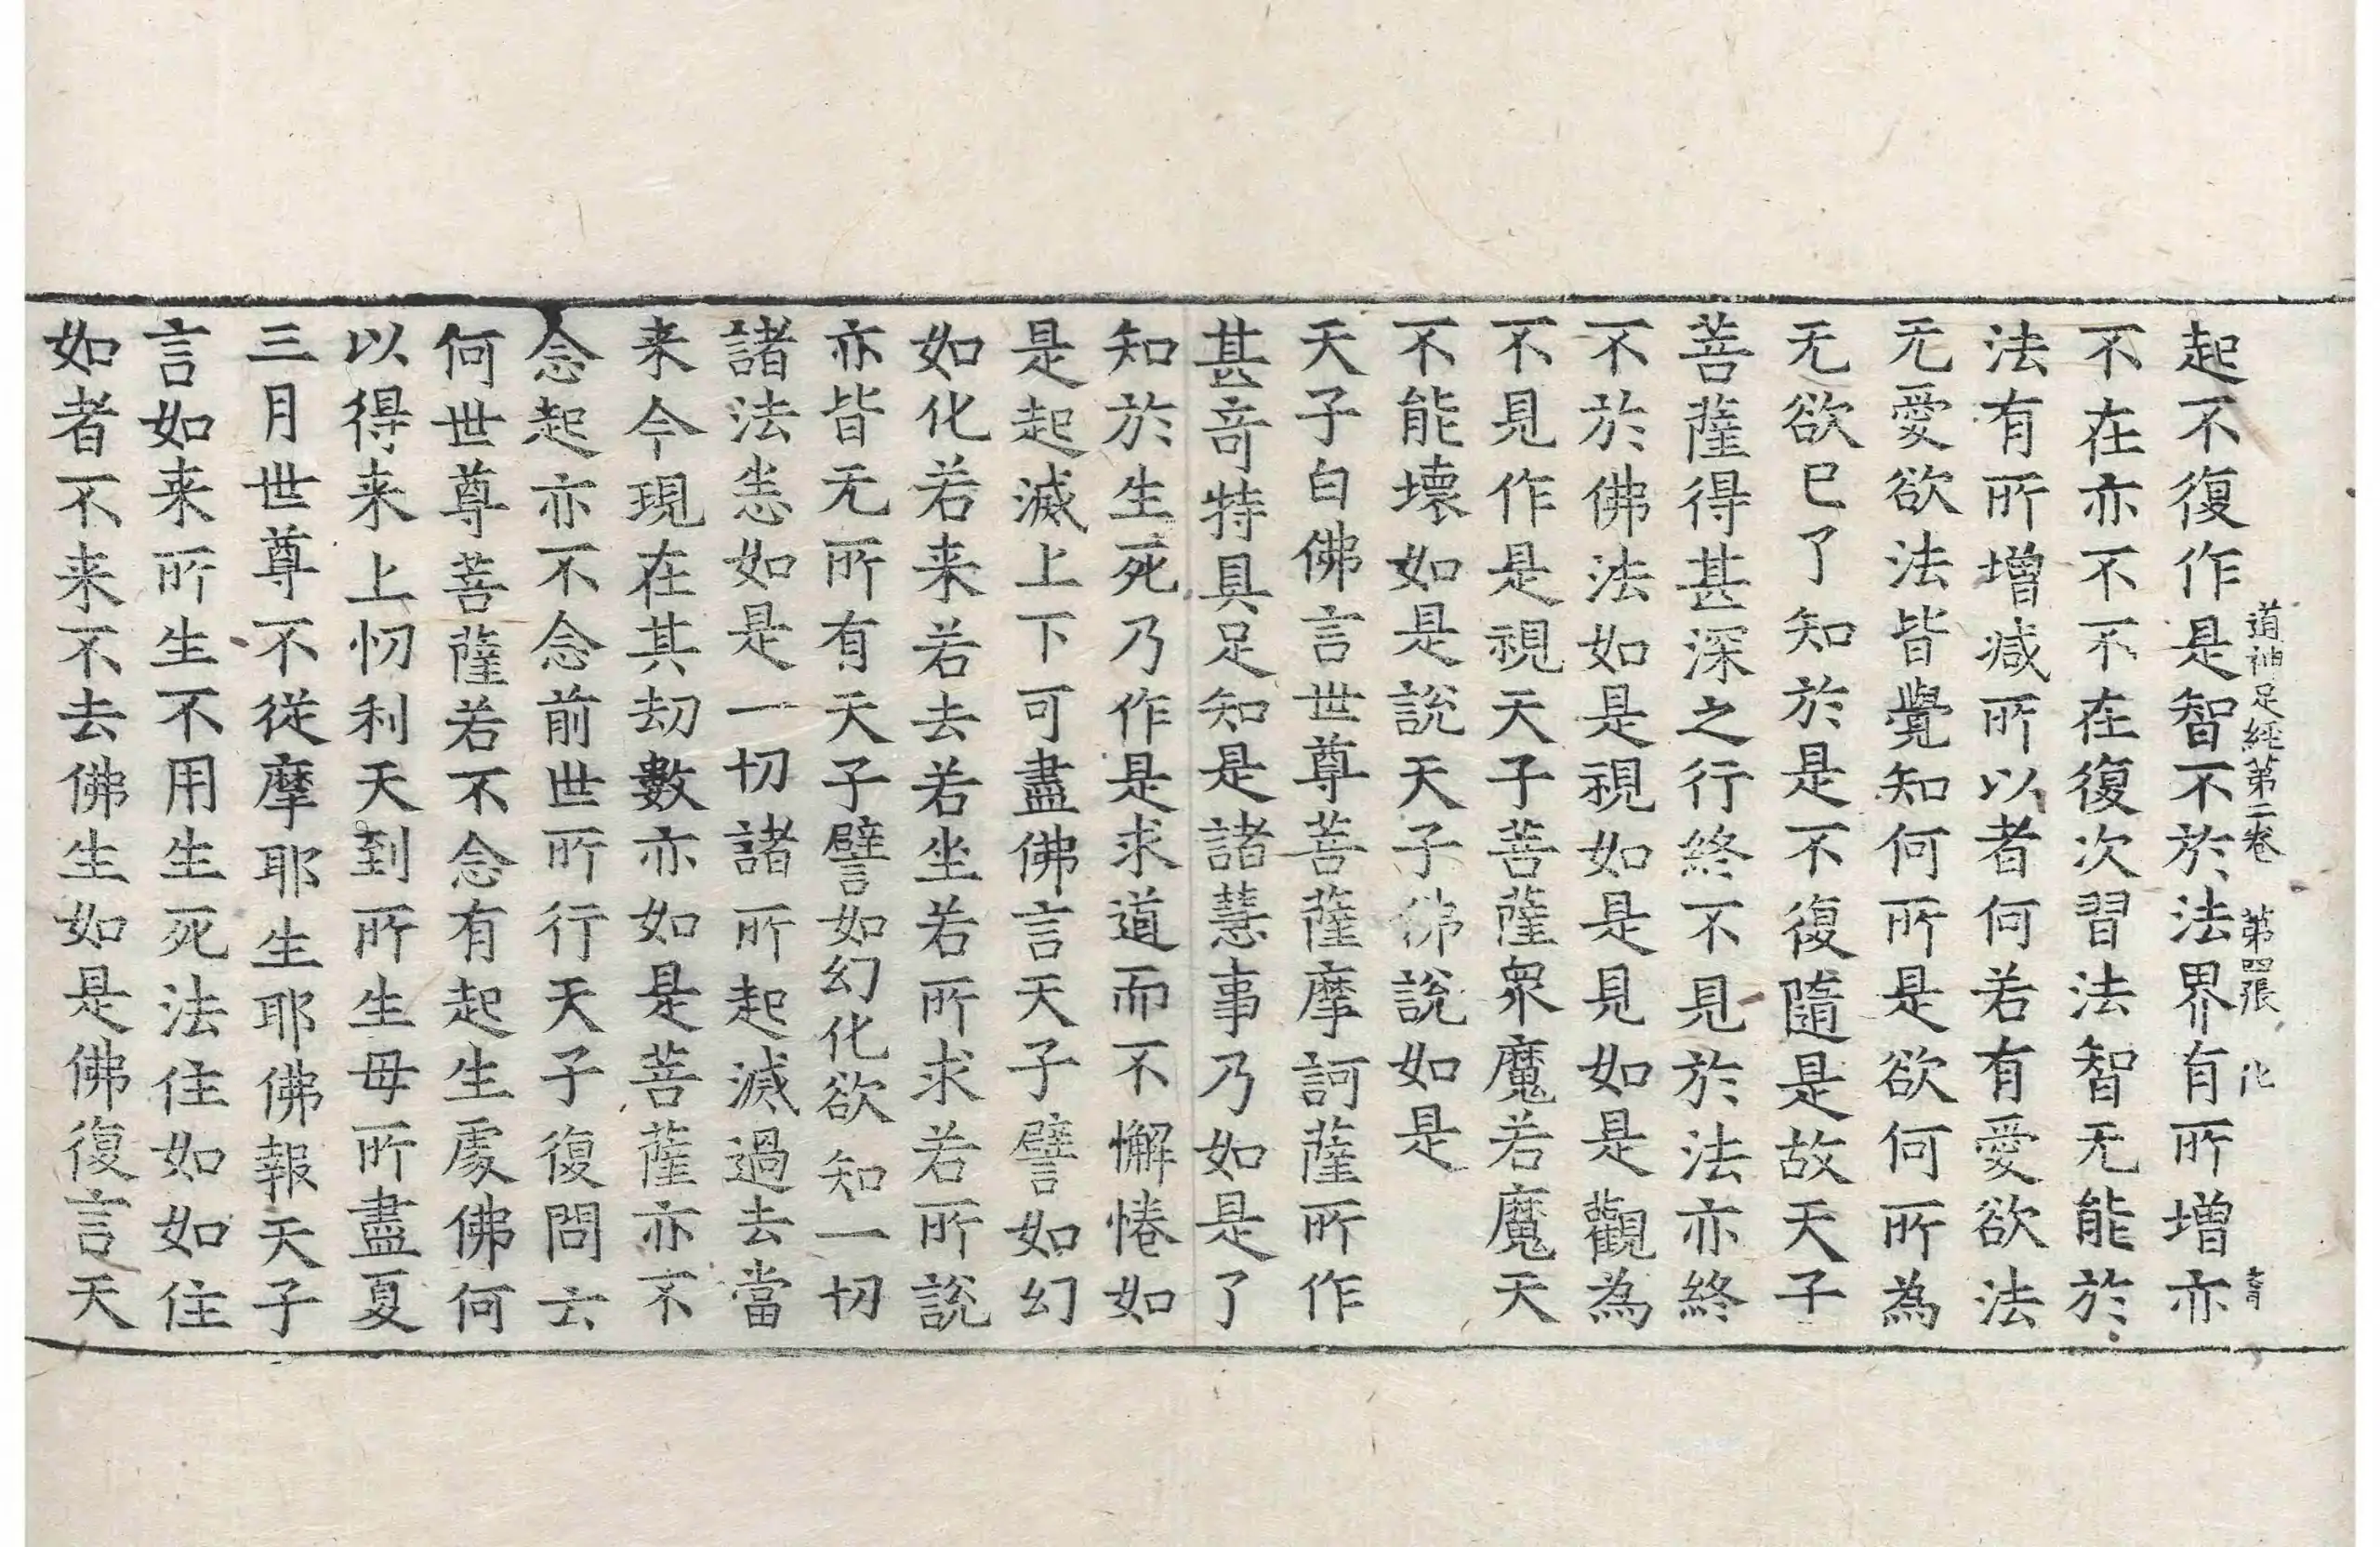 道神足經第二卷 第四張 化
起不復作是智不於法界有所增亦
不在亦不不在復次習法智无能於
法有所增減所以者何若有愛欲法
无愛欲法皆覺知何所是欲何所為
无欲已了知於是不復隨是故天子
菩薩得甚深之行終不見於法亦終
不於佛法如是視如是見如是觀為
不見作是視天子菩薩眾魔若魔天
不能壞如是說天子佛說如是
天子白佛言世尊菩薩摩訶薩所作
甚奇特具足知是諸慧事乃如是了
知於生死乃作是求道而不懈惓如
是起滅上下可盡佛言天子譬如幻
如化若来若去若坐若所求若所說
亦皆无所有天子譬如幻化欲知一切
諸法恙如是一切諸所起滅過去當
来今現在其劫數亦如是菩薩亦不
念起亦不念前世所行天子復問言
何世尊菩薩若不念有起生處佛何
以得来上忉利天到所生母所盡夏
三月世尊不從摩耶生耶佛報天子
言如来所生不用生死法住如如住
如者不来不去佛生如是佛復言天